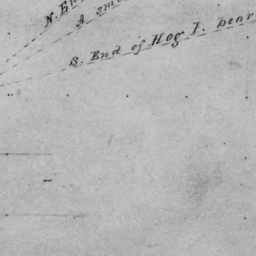 N. En
A sm
S. End of Hog I. bear